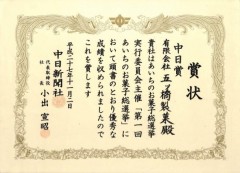 賞状
中日賞
有限会社 五ノ橋製菓殿
貴社はあいちのお菓子総選挙
実行委員会主催「第一回
あいちのお菓子総選挙」に
おいて頭書のとおり優秀な
成績を収められましたので
これを賞します
平成二十七年十一月一日
中日新聞社
代表取締役
社長 小出宣昭